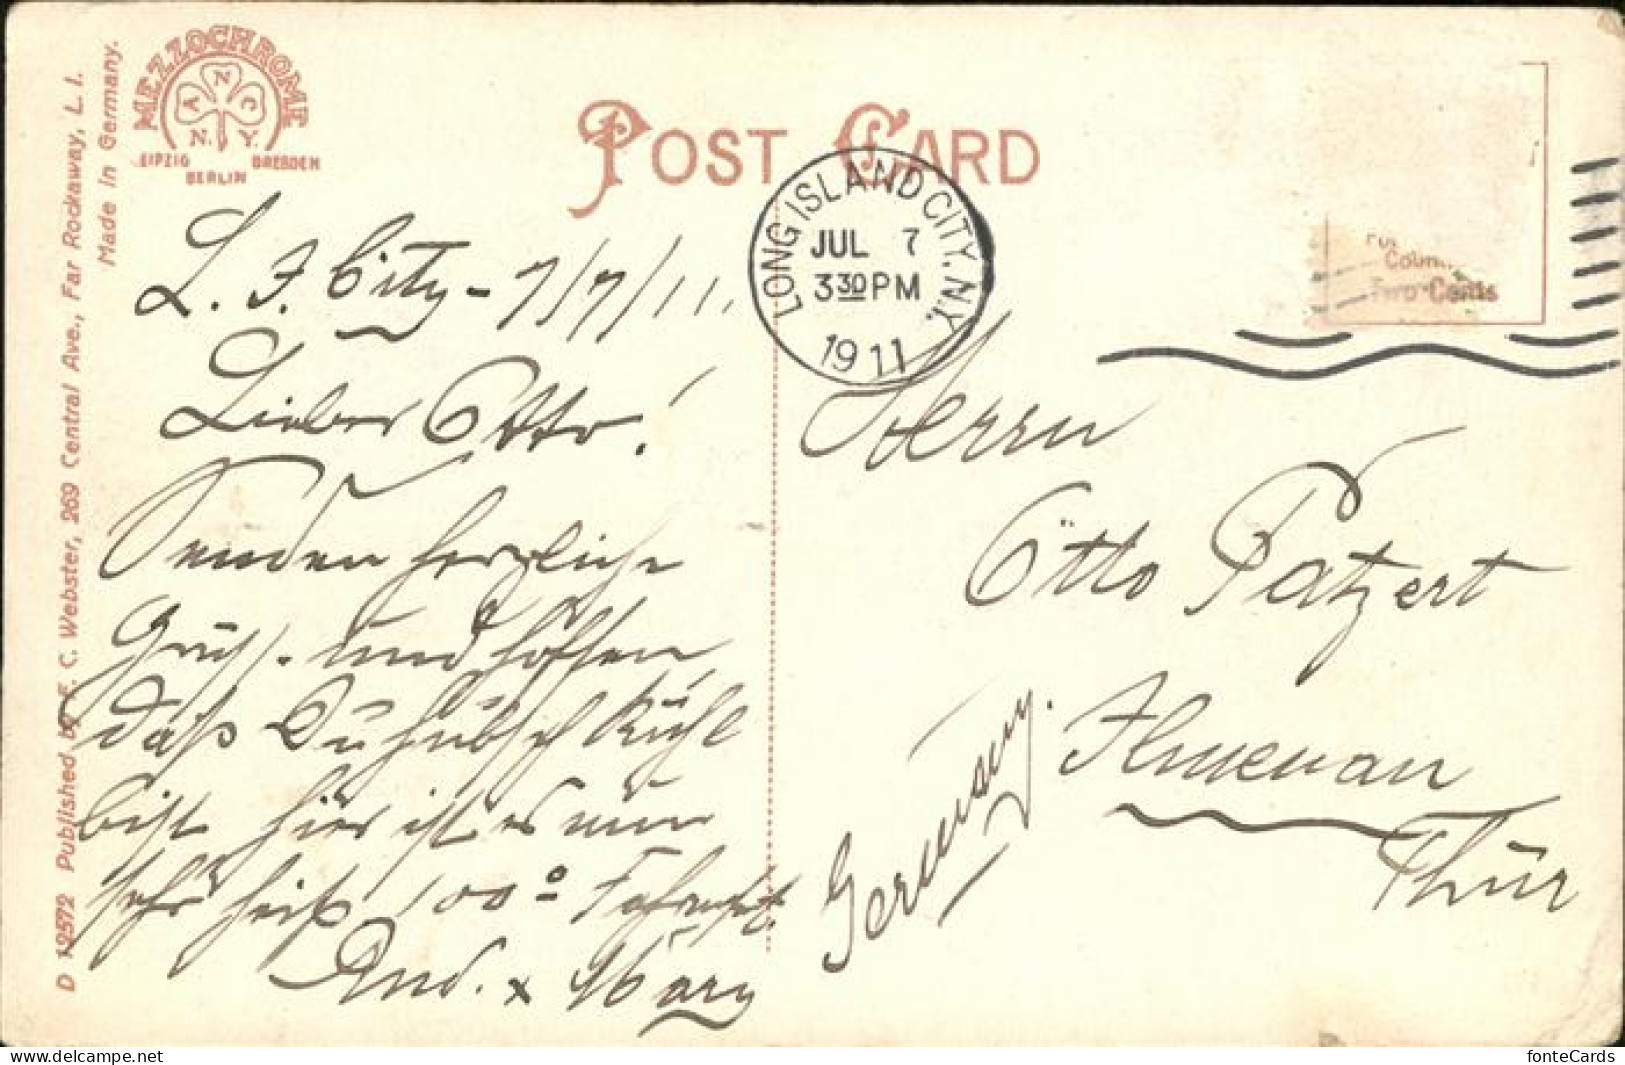 MEZZOCHROME
A N C
N. Y.
LEIPZIG DRESDEN
BERLIN
POST CARD
D 12572 Published by F. C. Webster, 269 Central Ave., Far Rockaway, L. I.
Made in Germany.
LONG ISLAND CITY, N.Y.
JUL 7
3 30 PM
1911
For
Two Cents
L. I. City - 7/7/11.
Lieber Otto!
Senden herzliche
Grüße und hoffen
daß Du hübsch kühl
bist hier ist es nun
sehr heiß 100° Fahrenht.
And. x Mary
Herrn
Otto Patzert
Ilmenau
Thür
Germany.
fonteCards
https://www.delcampe.net